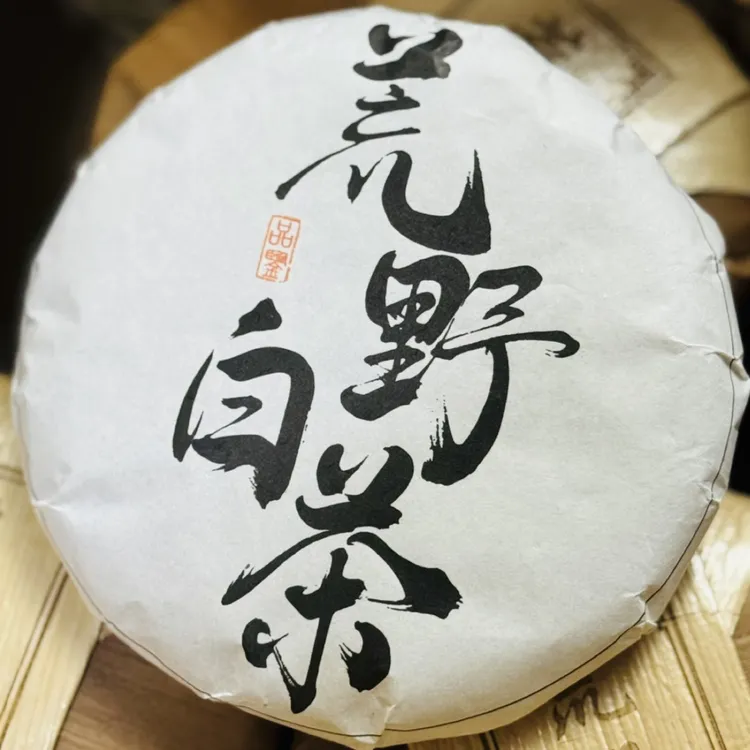 荒野
白茶
品鑒